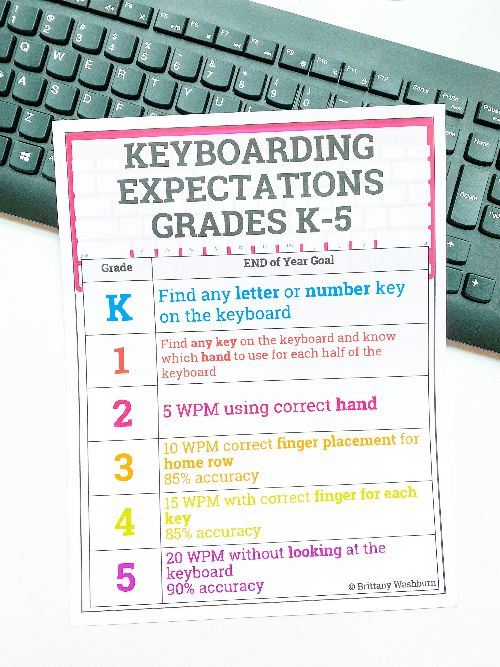 KEYBOARDING
EXPECTATIONS
GRADES K-5
Grade
END of Year Goal
K
Find any letter or number key
on the keyboard
1
Find any key on the keyboard and know
which hand to use for each half of the
keyboard
2
5 WPM using correct hand
3
10 WPM correct finger placement for
home row
85% accuracy
4
15 WPM with correct finger for each
key
85% accuracy
5
20 WPM without looking at the
keyboard
90% accuracy
© Brittany Washburn